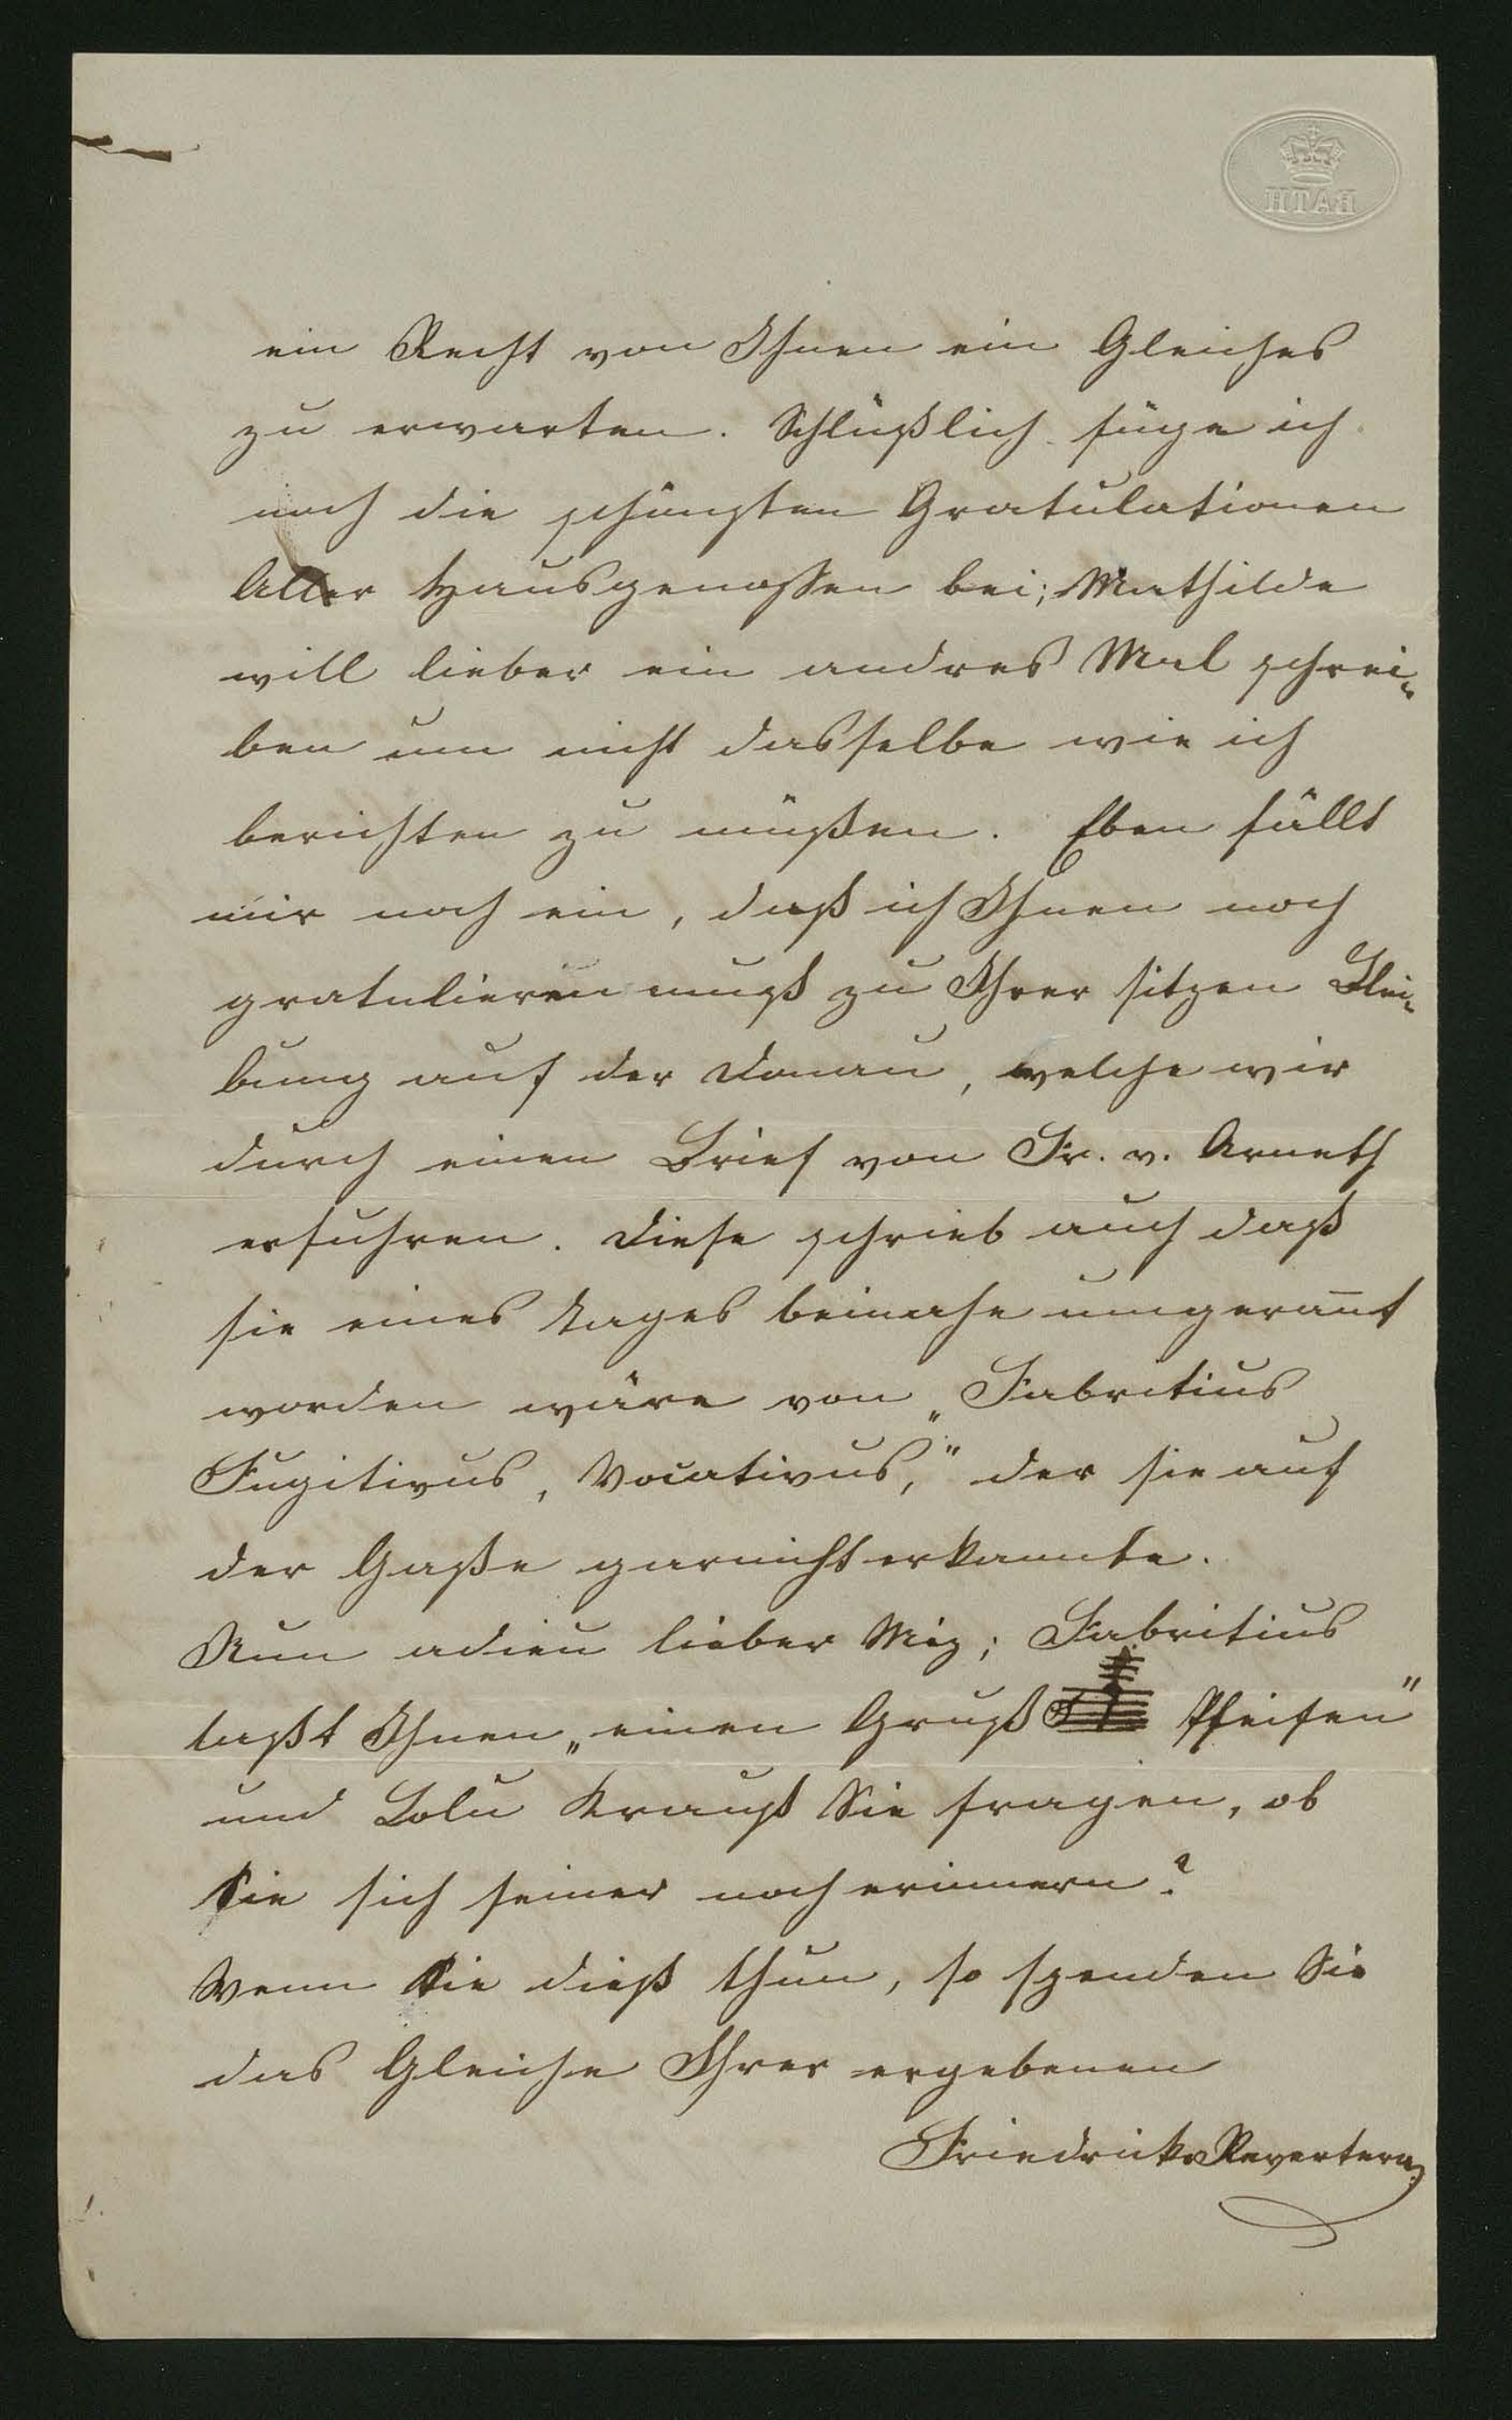 HTAB
ein Recht von Ihnen ein Gleiches
zu erwarten. Schlüßlich füge ich
noch die schönsten Gratulationen
Aller Hausgenossen bei; Mathilde
will lieber ein andres Mal schrei-
ben um nicht dasselbe wie ich
berichten zu müßen. Eben fällt
mir noch ein, daß ich Ihnen noch
gratulieren muß zu Ihrer sitzen Blei-
bung auf der Donau, welche wir
durch einen Brief von Fr. v. Arneth
erfuhren. Diese schrieb auch daß
sie eines Tages beinahe umgerannt
worden wäre von „Fabritius
Fugitivus, Vocativus," der sie auf
der Gaße garnicht erkannte.
Nun adieu lieber Miz; Fabritius
laßt Ihnen „einen Gruß Pfeifen"
und Lolu Krauß Sie fragen, ob
Sie sich seiner noch erinnern?
Wenn Sie dieß thun, so spenden Sie
das Gleiche Ihrer ergebenen
Friedricke Revertera